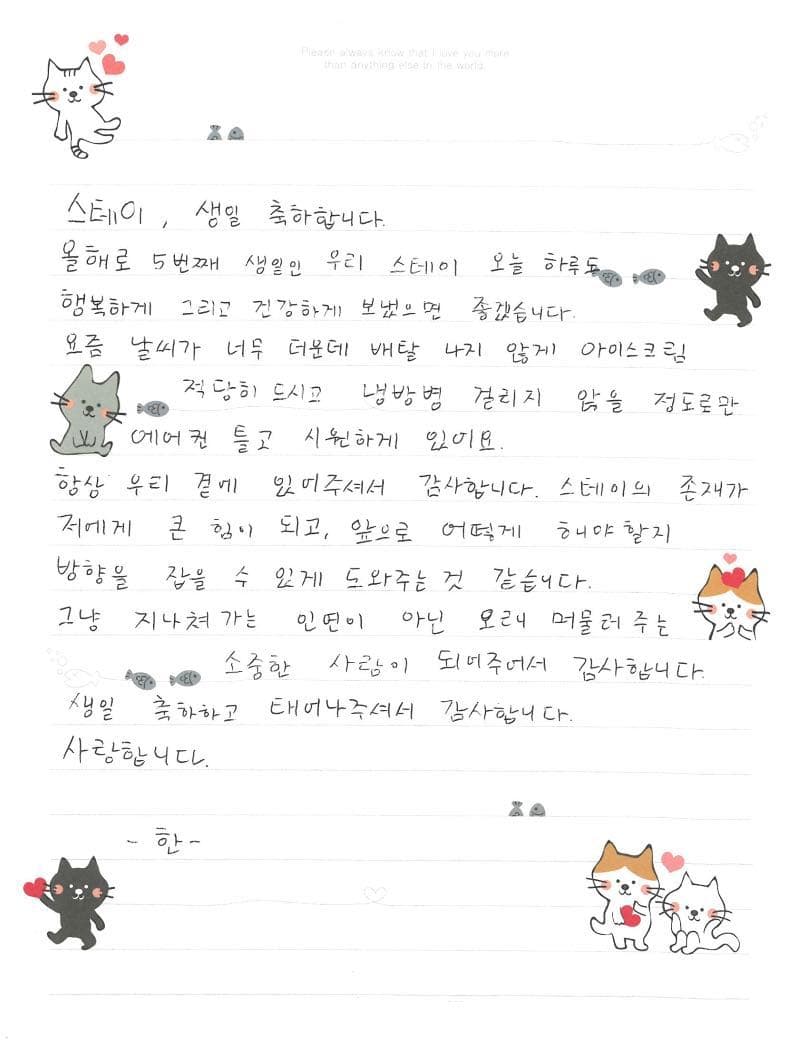 Please always know that I love you more
than anything else in the world.
스테이, 생일 축하합니다.
올해로 5번째 생일인 우리 스테이 오늘 하루도
행복하게 그리고 건강하게 보냈으면 좋겠습니다.
요즘 날씨가 너무 더운데 배탈 나지 않게 아이스크림
적당히 드시고 냉방병 걸리지 않을 정도로만
에어컨 틀고 시원하게 있어요.
항상 우리 곁에 있어주셔서 감사합니다. 스테이의 존재가
저에게 큰 힘이 되고, 앞으로 어떻게 해야할지
방향을 잡을 수 있게 도와주는 것 같습니다.
그냥 지나쳐 가는 인연이 아닌 오래 머물러 주는
소중한 사람이 되어주어서 감사합니다.
생일 축하하고 태어나주셔서 감사합니다.
사랑합니다.
- 한 -